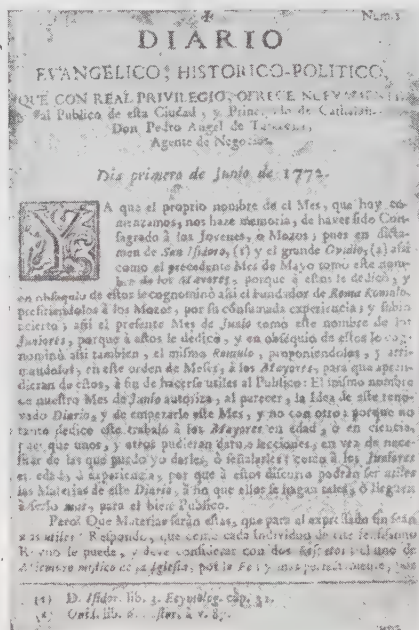 Num. 1
DIARIO
EVANGELICO, HISTORICO-POLITICO,
QUE CON REAL PRIVILEGIO, OFRECE NUEVAMENTE
al Publico de esta Ciudad, y Principado de Cathaluña
Don Pedro Angel de
Agente de Negocios.
Dia primero de Junio de 1772.
YA que el proprio nombre de el Mes, que hoy co-
menzamos, nos haze memoria, de haver sido Con-
sagrado à los Jovenes, ò Mozos; pues en dicta-
men de San Isidoro, (1) y el grande Ovidio, (2) assi
como el precedente Mes de Mayo tomò este nom-
bre de los Mayores, porque à estos le dedicò, y
en obsequio de estos le cognominò assi el Fundador de Roma Romulo,
prefiriendolos à los Mozos, por su consumada experiencia, y sabio
acierto; assi el presente Mes de Junio tomò este nombre de los
Juniores, porque à estos le dedicò, y en obsequio de estos le cog-
nominò assi tambien, el mismo Romulo, proponiendolos, y
en este orden de Meses, à los Mayores, para que apren-
dieran de estos, à fin de hacerse utiles al Publico: El mismo nombre
de nuestro Mes de Junio autoriza, al parecer, la Idea de este reno-
vado Diario, y de empezarle este Mes, y no con otro: porque no
tanto dedico este trabajo à los Mayores en edad, ò en ciencia,
que unos, y otros pudieran darme lecciones, en vez de nece-
sitar de las que puedo yo darles, ò señalarles; como à los Juniores
en edad, ò experiencia, por que à estos discurro podràn ser utiles
las Materias de este Diario, à no que ellos se hagan tales, ò lleguen
à serlo mas, para el bien Publico.
Pero: Que Materias seràn estas, que para el expressado fin sean
mas utiles? Respondo, que como cada Individuo de este
Reyno se puede, y deve considerar con dos Respetos: el uno de
Miembro mistico de la Iglesia, por la Fe; y mas
(1) D. Isidor. lib. 5. Etymolog. cap. 33.
(2) Ovid. lib. 6. à v. 87.